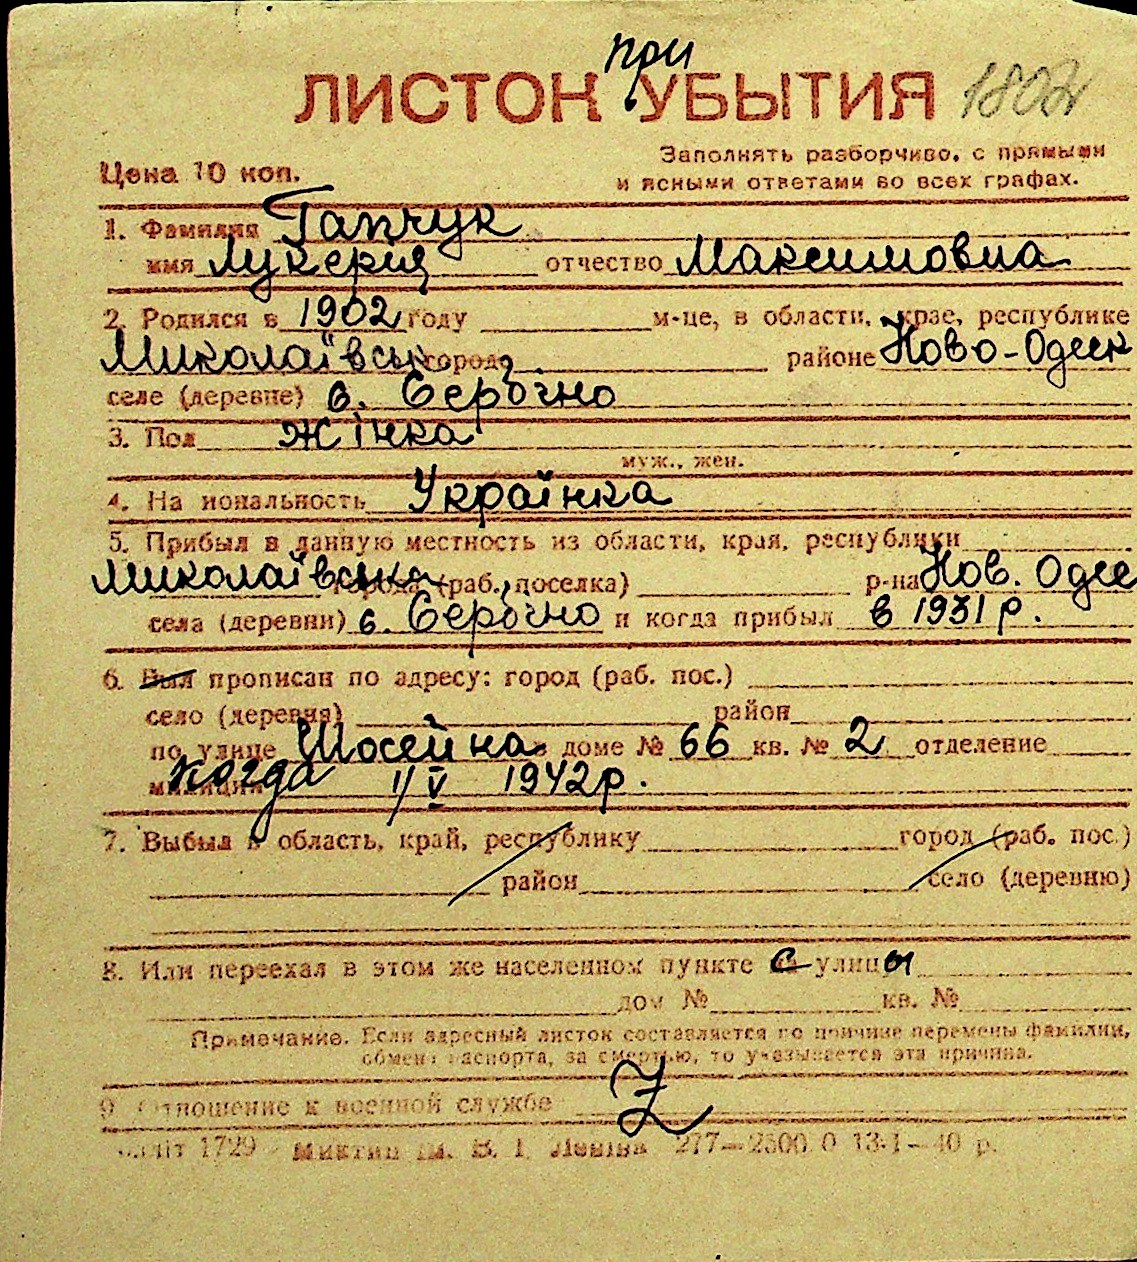 при
ЛИСТОК УБЫТИЯ 1802
Цена 10 коп.
Заполнять разборчиво, с прямыми
и ясными ответами во всех графах.
1. Фамилия Гапчук
имя Лукерия отчество Максимовна
2. Родился в 1902 году м-це, в области, крае, республике
Миколаївськ городе районе Ново-Одеск
селе (деревне) с. Сербочно
3. Пол жінка
муж., жен.
4. Национальность Українка
5. Прибыл в данную местность из области, края, республики
Миколаївська города (раб. поселка) р-на Нов. Одес
села (деревни) с. Сербочно и когда прибыл в 1931 р.
6. Был прописан по адресу: город (раб. пос.)
село (деревня) район
по улице Шосейна доме № 66 кв. № 2 отделение
милиции когда 1/V 1942 р.
7. Выбыл в область, край, республику город (раб. пос.)
район село (деревню)
8. Или переехал в этом же населенном пункте с улицы
дом № кв. №
Примечание. Если адресный листок составляется по причине перемены фамилии,
обмена паспорта, за смертью, то указывается эта причина.
9. Отношение к военной службе Z
1729 ім. В. І. Леніна 277—2500 0 13-I—40 р.